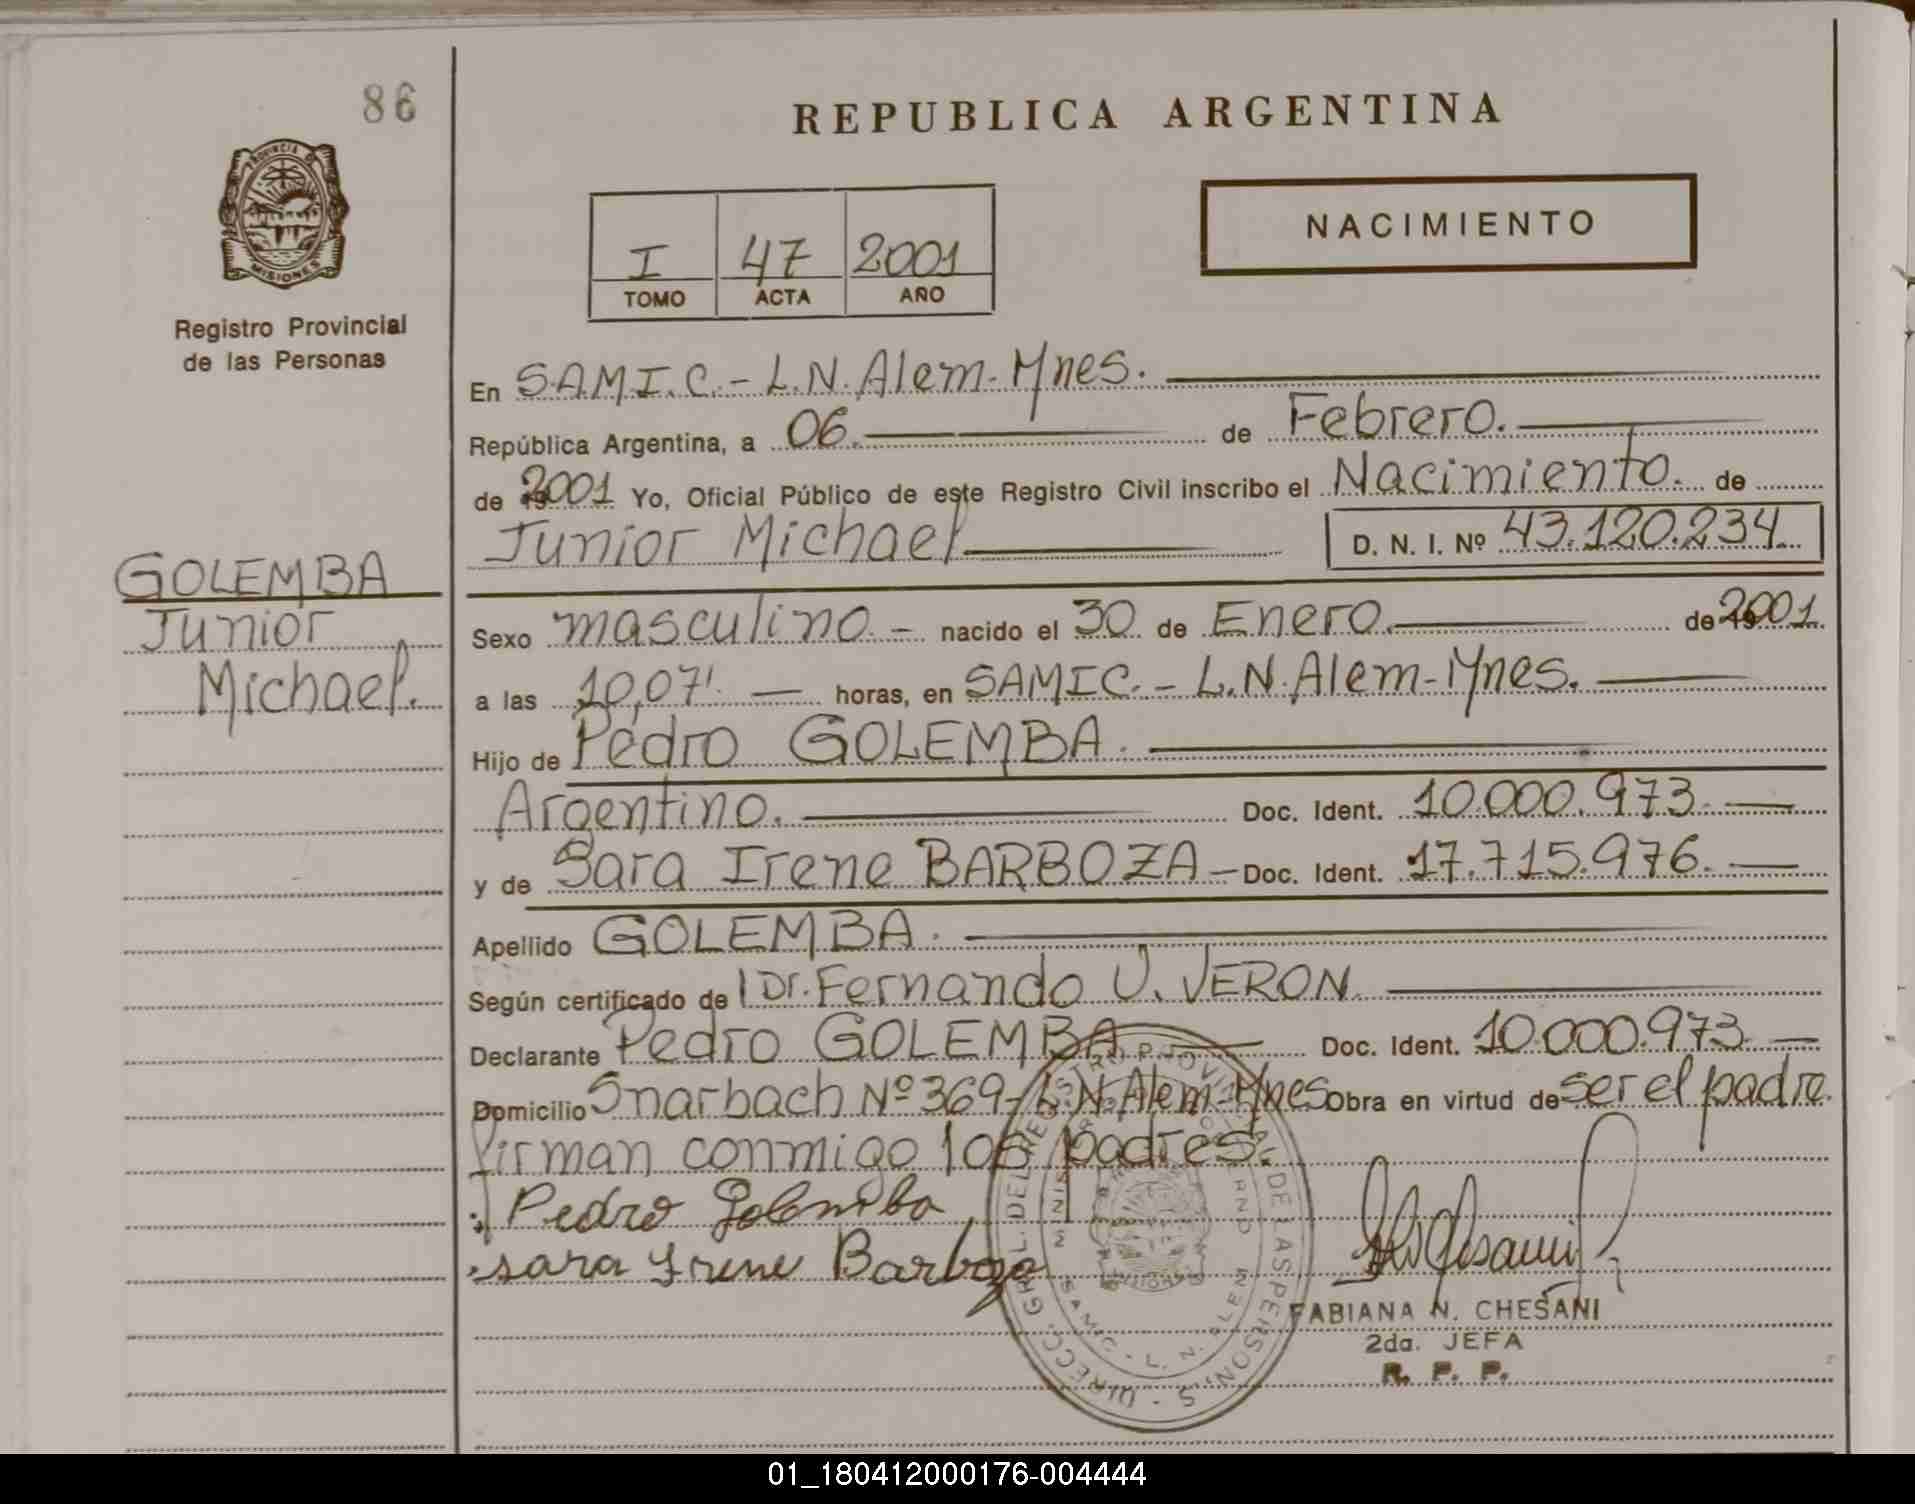 86
REPUBLICA ARGENTINA
PROVINCIA DE
MISIONES
Registro Provincial
de las Personas
I 47 2001
TOMO ACTA AÑO
NACIMIENTO
En S.A.M.I.C. - L.N. Alem - Mnes.
República Argentina, a 06. de Febrero.
de 2001 Yo, Oficial Público de este Registro Civil inscribo el Nacimiento. de
Junior Michael D. N. I. Nº 43.120.234
GOLEMBA
Junior
Michael.
Sexo masculino. - nacido el 30 de Enero. de 2001
a las 10,07'. — horas, en SAMIC. - L.N. Alem - Mnes.
Hijo de Pedro GOLEMBA.
Argentino. Doc. Ident. 10.000.973.
y de Sara Irene BARBOZA - Doc. Ident. 17.715.976.
Apellido GOLEMBA.
Según certificado de l Dr. Fernando U. VERON.
Declarante Pedro GOLEMBA Doc. Ident. 10.000.973
Domicilio Snarbach Nº 369 - L.N. Alem - Mnes Obra en virtud de ser el padre.
firman conmigo los padres.
Pedro Golemba
Sara Irene Barboza
DIRECC. GRAL. DEL REGISTRO PROVINCIAL DE LAS PERSONAS
SAMIC - L. N. ALEM
FABIANA N. CHESANI
2da. JEFA
R. P. P.
01_180412000176-004444